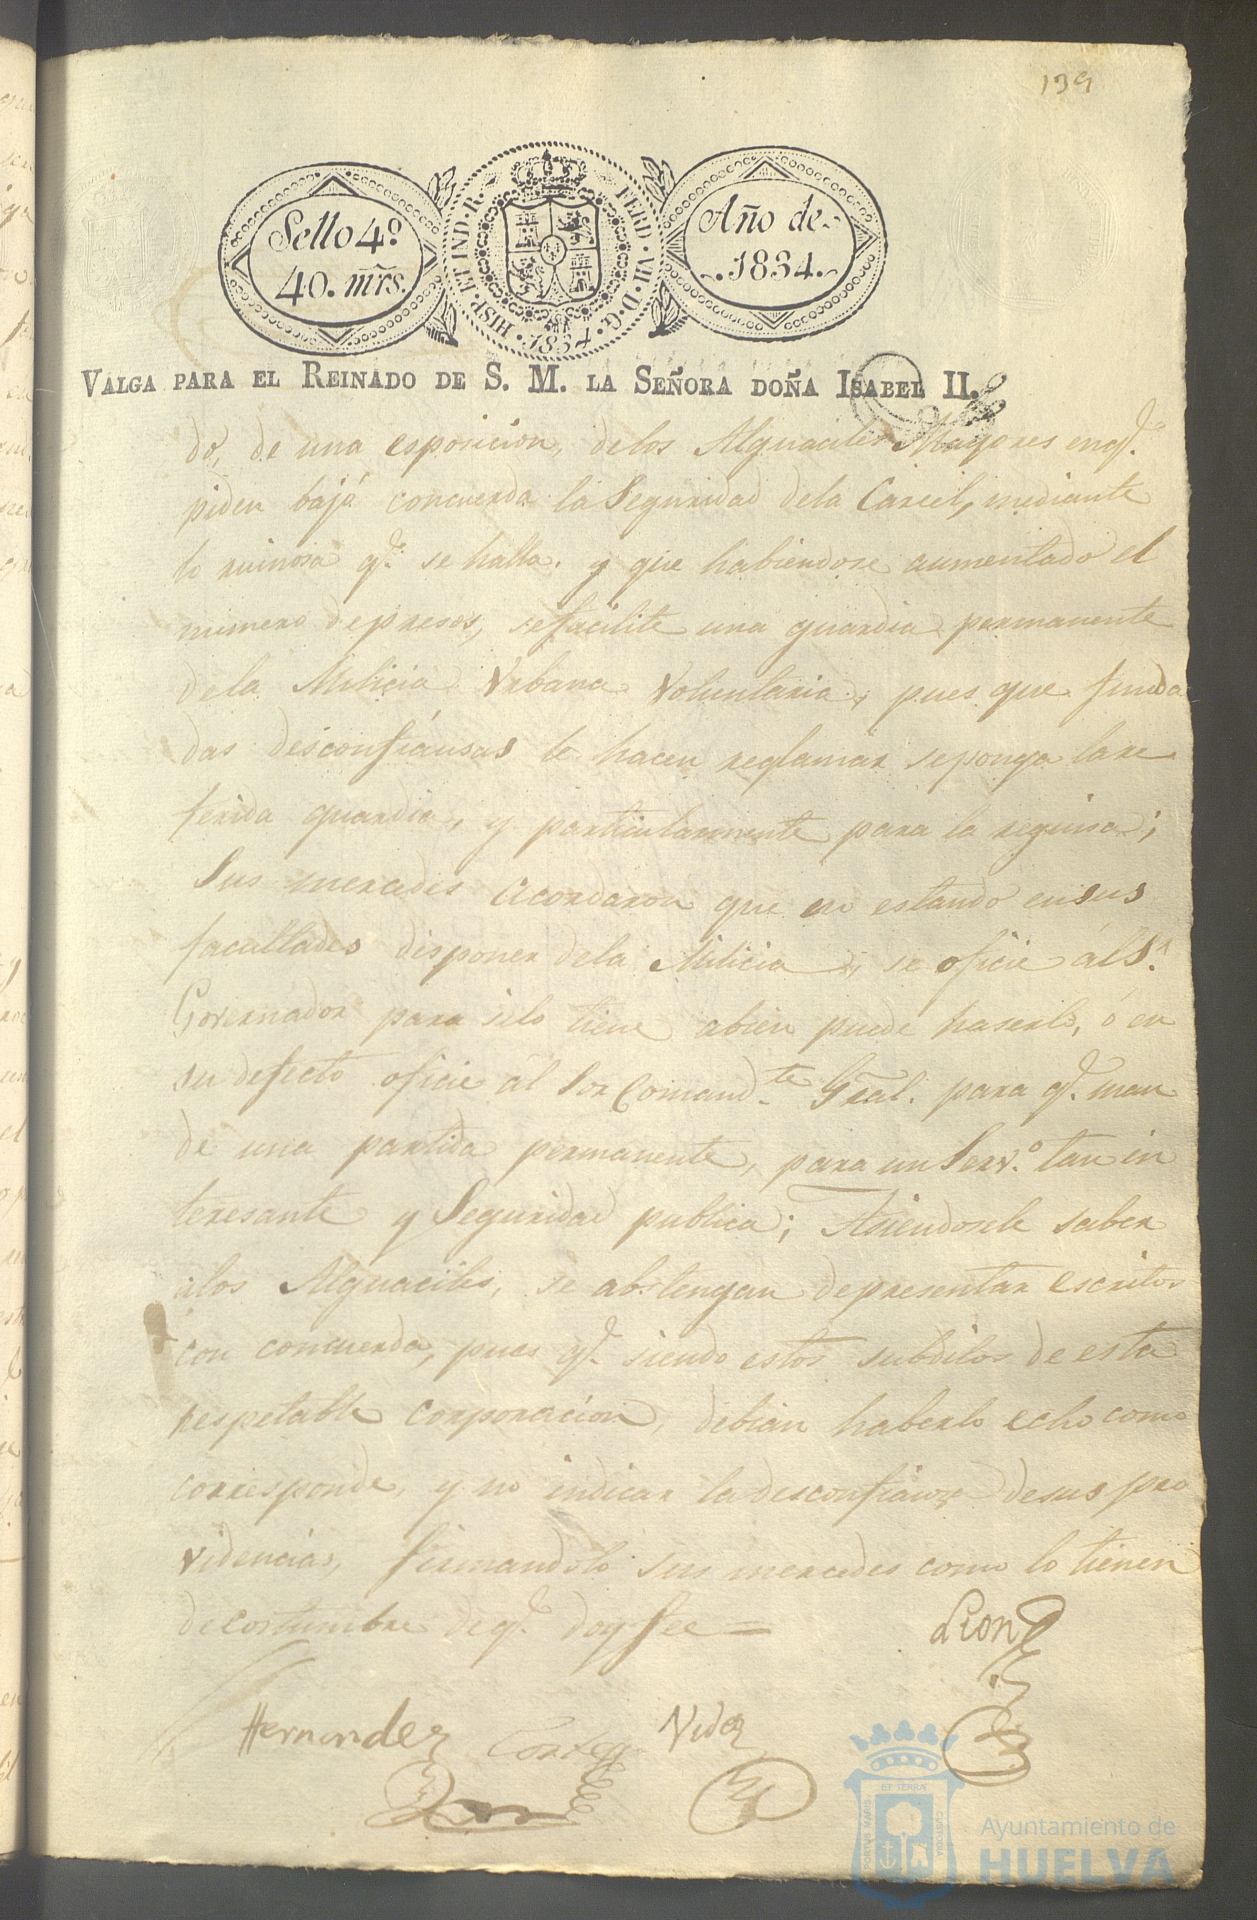 139
Sello 4º
40. mrs.
HISP. ET IND. R. FERD. VII. D. G. 1834.
Año de
1834.
VALGA PARA EL REINADO DE S. M. LA SEÑORA DOÑA ISABEL II.
do, de una esposicion, delos Alguaciles Mayores enq.e
piden bajó concuerda la Seguridad dela Carcel, mediante
lo ruinosa q.e se halla. y que habiendose aumentado el
numero depresos, sefacilite una guardia permanente
dela Milicia Vrbana Voluntaria, pues que funda
das desconfiánsas le hacen reglamar seponga lare
ferida guardia, y particularmente para la
Sus mercedes acordaron que no estando ensus
facultades disponer dela Milicia, se oficie ál S.r
Governador para silo tiene abien puede haserlo, ó en
su defecto oficie ál Sor Comand.te Gral. para q.e man
de una partida permanente, para un Serv.o tan in
teresante y Seguridad publica; Asiendosele saber
alos Alguaciles, se abstengan depresentar escritos
con concuerda, pues q.e siendo estos subditos de esta
respetable corporacion, debian haberlo echo como
corresponde, y no indicar la desconfianza desus pro
videncias, firmandolo sus mercedes como lo tienen
decostumbre de q.e doy fee =
Leon
Hernandez Cortes Vides
ET TERRÆ
PORTUS MARIS
CUSTODIA
Ayuntamiento de
HUELVA